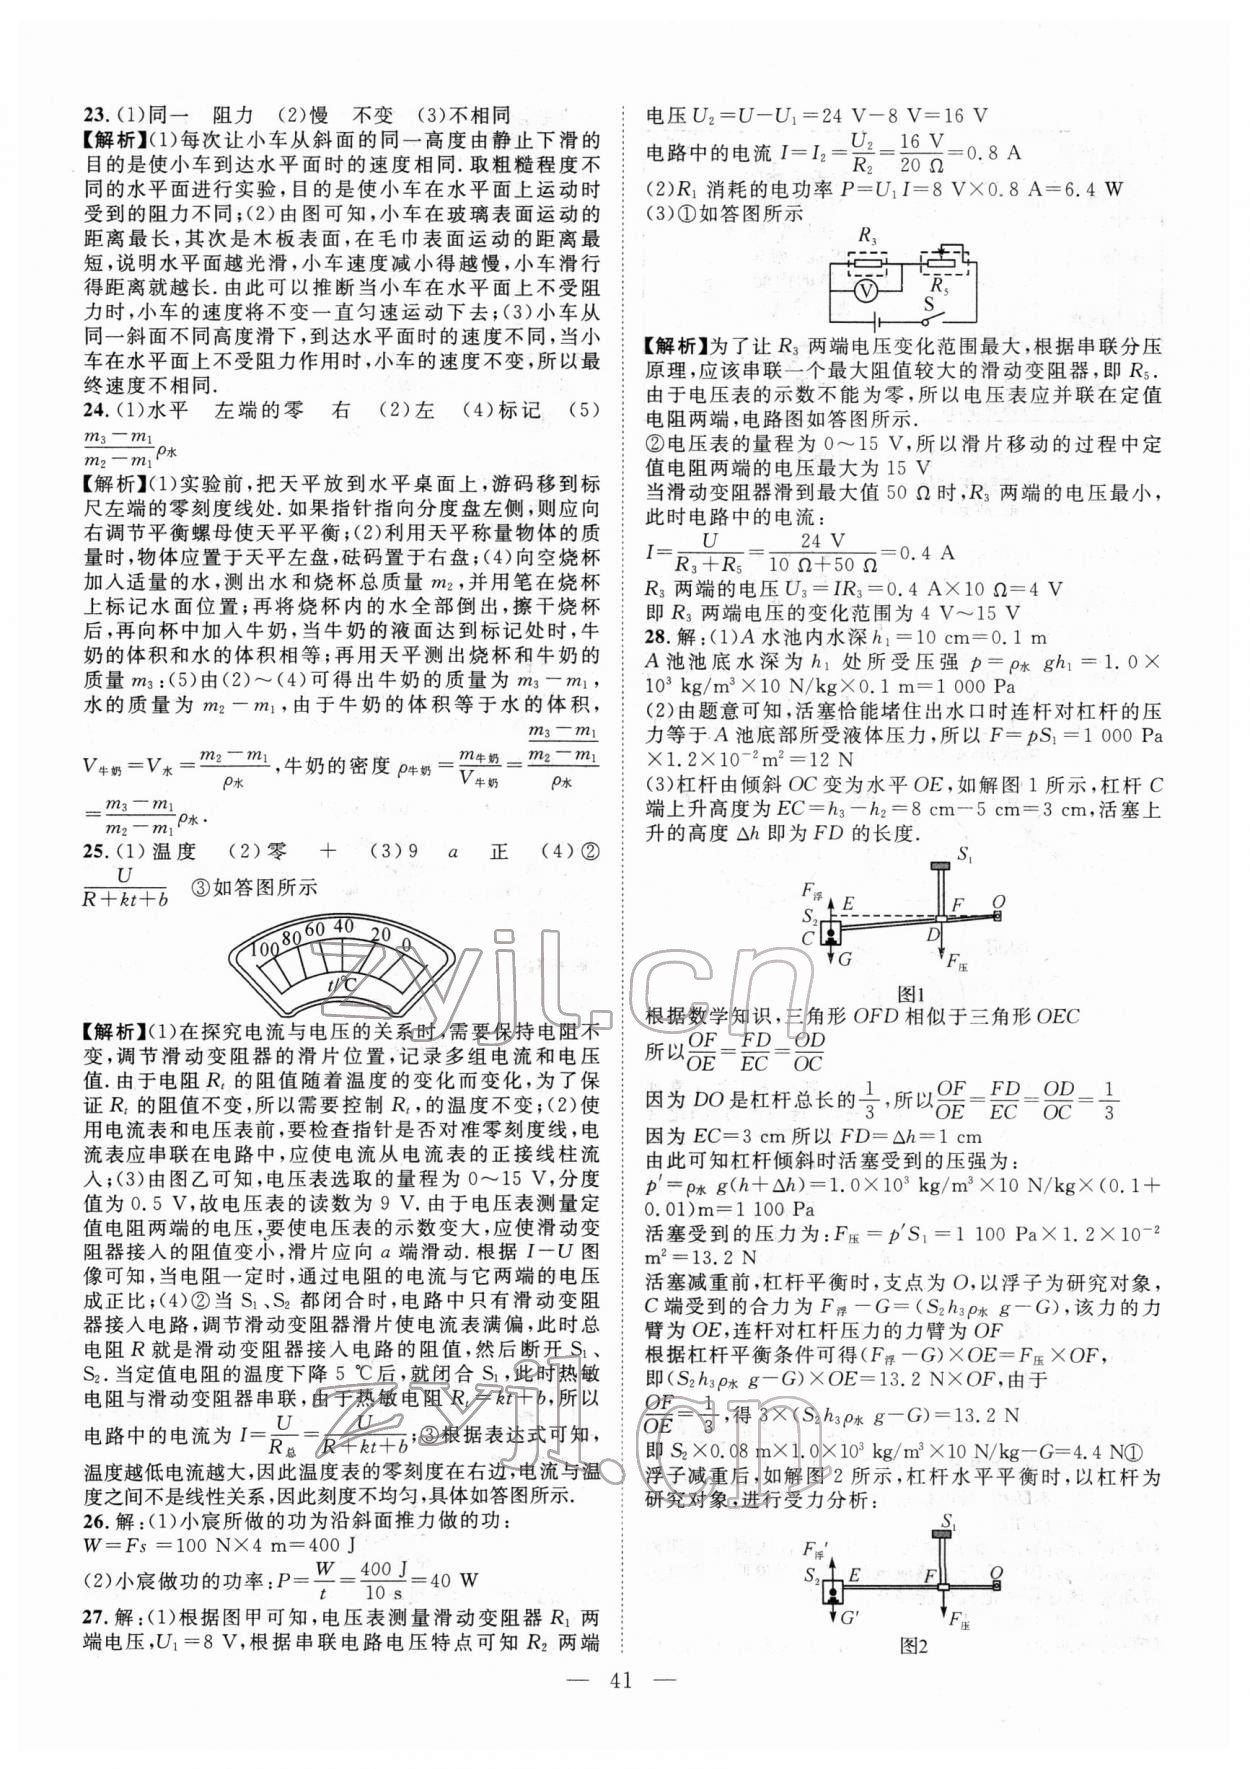 23.(1)同一　阻力　(2)慢　不变　(3)不相同
【解析】(1)每次让小车从斜面的同一高度由静止下滑的
目的是使小车到达水平面时的速度相同.取粗糙程度不
同的水平面进行实验,目的是使小车在水平面上运动时
受到的阻力不同;(2)由图可知,小车在玻璃表面运动的
距离最长,其次是木板表面,在毛巾表面运动的距离最
短,说明水平面越光滑,小车速度减小得越慢,小车滑行
得距离就越长.由此可以推断当小车在水平面上不受阻
力时,小车的速度将不变一直匀速运动下去;(3)小车从
同一斜面不同高度滑下,到达水平面时的速度不同,当小
车在水平面上不受阻力作用时,小车的速度不变,所以最
终速度不相同.
24.(1)水平　左端的零　右　(2)左　(4)标记　(5)
(m₃−m₁)/(m₂−m₁)ρ水
【解析】(1)实验前,把天平放到水平桌面上,游码移到标
尺左端的零刻度线处.如果指针指向分度盘左侧,则应向
右调节平衡螺母使天平平衡;(2)利用天平称量物体的质
量时,物体应置于天平左盘,砝码置于右盘;(4)向空烧杯
加入适量的水,测出水和烧杯总质量 m₂,并用笔在烧杯
上标记水面位置;再将烧杯内的水全部倒出,擦干烧杯
后,再向杯中加入牛奶,当牛奶的液面达到标记处时,牛
奶的体积和水的体积相等;再用天平测出烧杯和牛奶的
质量 m₃;(5)由(2)～(4)可得出牛奶的质量为 m₃−m₁,
水的质量为 m₂−m₁,由于牛奶的体积等于水的体积,
V牛奶=V水=(m₂−m₁)/ρ水,牛奶的密度 ρ牛奶=m牛奶/V牛奶=(m₃−m₁)/((m₂−m₁)/ρ水)
=(m₃−m₁)/(m₂−m₁)ρ水.
25.(1)温度　(2)零　+　(3)9　a　正　(4)②
U/(R+kt+b)　③如答图所示
100 80 60 40 20 0
t/℃
【解析】(1)在探究电流与电压的关系时,需要保持电阻不
变,调节滑动变阻器的滑片位置,记录多组电流和电压
值.由于电阻 Rₜ 的阻值随着温度的变化而变化,为了保
证 Rₜ 的阻值不变,所以需要控制 Rₜ,的温度不变;(2)使
用电流表和电压表前,要检查指针是否对准零刻度线,电
流表应串联在电路中,应使电流从电流表的正接线柱流
入;(3)由图乙可知,电压表选取的量程为 0～15 V,分度
值为 0.5 V,故电压表的读数为 9 V.由于电压表测量定
值电阻两端的电压,要使电压表的示数变大,应使滑动变
阻器接入的阻值变小,滑片应向 a 端滑动.根据 I−U 图
像可知,当电阻一定时,通过电阻的电流与它两端的电压
成正比;(4)②当 S₁、S₂ 都闭合时,电路中只有滑动变阻
器接入电路,调节滑动变阻器滑片使电流表满偏,此时总
电阻 R 就是滑动变阻器接入电路的阻值,然后断开 S₁、
S₂.当定值电阻的温度下降 5 ℃后,就闭合 S₁,此时热敏
电阻与滑动变阻器串联,由于热敏电阻 Rₜ=kt+b,所以
电路中的电流为 I=U/R总=U/(R+kt+b);③根据表达式可知,
温度越低电流越大,因此温度表的零刻度在右边,电流与温
度之间不是线性关系,因此刻度不均匀,具体如答图所示.
26.解:(1)小宸所做的功为沿斜面推力做的功:
W=Fs=100 N×4 m=400 J
(2)小宸做功的功率:P=W/t=400 J/10 s=40 W
27.解:(1)根据图甲可知,电压表测量滑动变阻器 R₁ 两
端电压,U₁=8 V,根据串联电路电压特点可知 R₂ 两端
电压 U₂=U−U₁=24 V−8 V=16 V
电路中的电流 I=I₂=U₂/R₂=16 V/20 Ω=0.8 A
(2)R₁ 消耗的电功率 P=U₁I=8 V×0.8 A=6.4 W
(3)①如答图所示
R₃
V
R₅
S
【解析】为了让 R₃ 两端电压变化范围最大,根据串联分压
原理,应该串联一个最大阻值较大的滑动变阻器,即 R₅.
由于电压表的示数不能为零,所以电压表应并联在定值
电阻两端,电路图如答图所示.
②电压表的量程为 0～15 V,所以滑片移动的过程中定
值电阻两端的电压最大为 15 V
当滑动变阻器滑到最大值 50 Ω时,R₃ 两端的电压最小,
此时电路中的电流:
I=U/(R₃+R₅)=24 V/(10 Ω+50 Ω)=0.4 A
R₃ 两端的电压 U₃=IR₃=0.4 A×10 Ω=4 V
即 R₃ 两端电压的变化范围为 4 V～15 V
28.解:(1)A 水池内水深 h₁=10 cm=0.1 m
A 池池底水深为 h₁ 处所受压强 p=ρ水 gh₁=1.0×
10³ kg/m³×10 N/kg×0.1 m=1 000 Pa
(2)由题意可知,活塞恰能堵住出水口时连杆对杠杆的压
力等于 A 池底部所受液体压力,所以 F=pS₁=1 000 Pa
×1.2×10⁻²m²=12 N
(3)杠杆由倾斜 OC 变为水平 OE,如解图 1 所示,杠杆 C
端上升高度为 EC=h₃−h₂=8 cm−5 cm=3 cm,活塞上
升的高度 Δh 即为 FD 的长度.
S₁
F浮 E F O
S₂
C D
G F压
图1
根据数学知识,三角形 OFD 相似于三角形 OEC
所以OF/OE=FD/EC=OD/OC
因为 DO 是杠杆总长的1/3,所以OF/OE=FD/EC=OD/OC=1/3
因为 EC=3 cm 所以 FD=Δh=1 cm
由此可知杠杆倾斜时活塞受到的压强为:
p′=ρ水 g(h+Δh)=1.0×10³ kg/m³×10 N/kg×(0.1+
0.01)m=1 100 Pa
活塞受到的压力为:F压=p′S₁=1 100 Pa×1.2×10⁻²
m²=13.2 N
活塞减重前,杠杆平衡时,支点为 O,以浮子为研究对象,
C 端受到的合力为 F浮−G=(S₂h₃ρ水 g−G),该力的力
臂为 OE,连杆对杠杆压力的力臂为 OF
根据杠杆平衡条件可得(F浮−G)×OE=F压×OF,
即(S₂h₃ρ水 g−G)×OE=13.2 N×OF,由于
OF/OE=1/3,得 3×(S₂h₃ρ水 g−G)=13.2 N
即 S₂×0.08 m×1.0×10³ kg/m³×10 N/kg−G=4.4 N①
浮子减重后,如解图 2 所示,杠杆水平平衡时,以杠杆为
研究对象,进行受力分析:
S₁
F浮′
S₂ E F O
G′ F压
图2
— 41 —
zyjl.cn
zyjl.cn